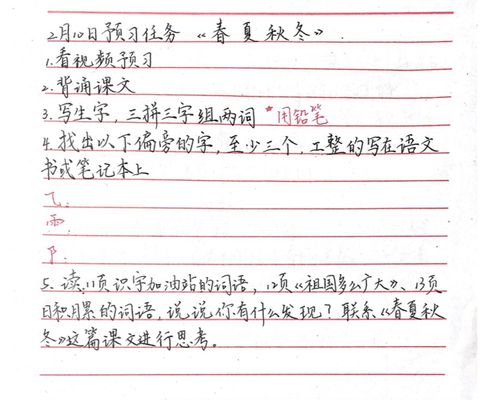 2月10日预习任务 《春夏秋冬》.
1.看视频预习
2.背诵课文
3.写生字，三拼三字组两词 *用铅笔
4.找出以下偏旁的字，至少三个，工整的写在语文
书或笔记本上
飞：
雨：
阝：
5.读11页识字加油站的词语，12页《祖国多么广大》、13页
日积月累的词语，说说你有什么发现？联系《春夏秋
冬》这篇课文进行思考。